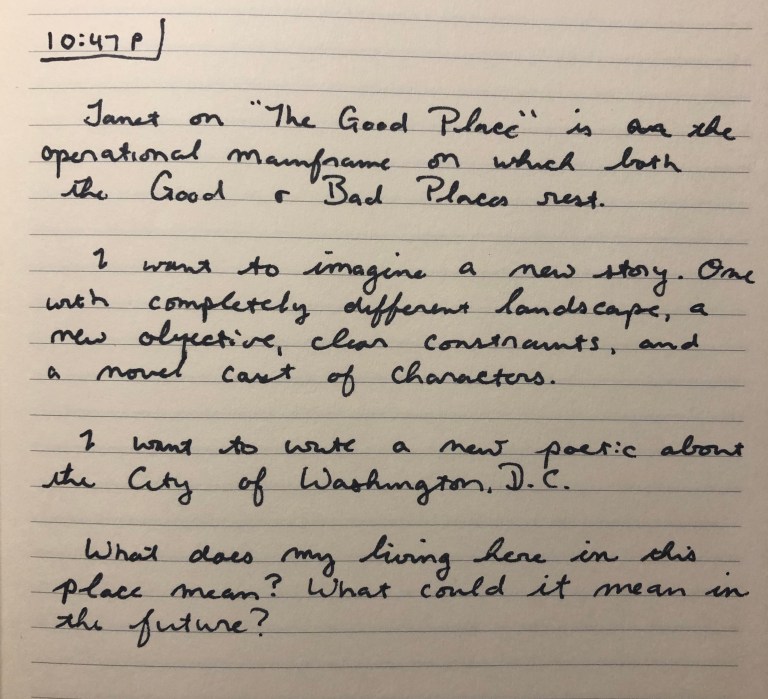 10:47 P
Janet on "The Good Place" is the
operational mainframe on which both
the Good & Bad Places rest.
I want to imagine a new story. One
with completely different landscape, a
new objective, clear constraints, and
a novel cast of characters.
I want to write a new poetic about
the City of Washington, D.C.
What does my living here in this
place mean? What could it mean in
the future?